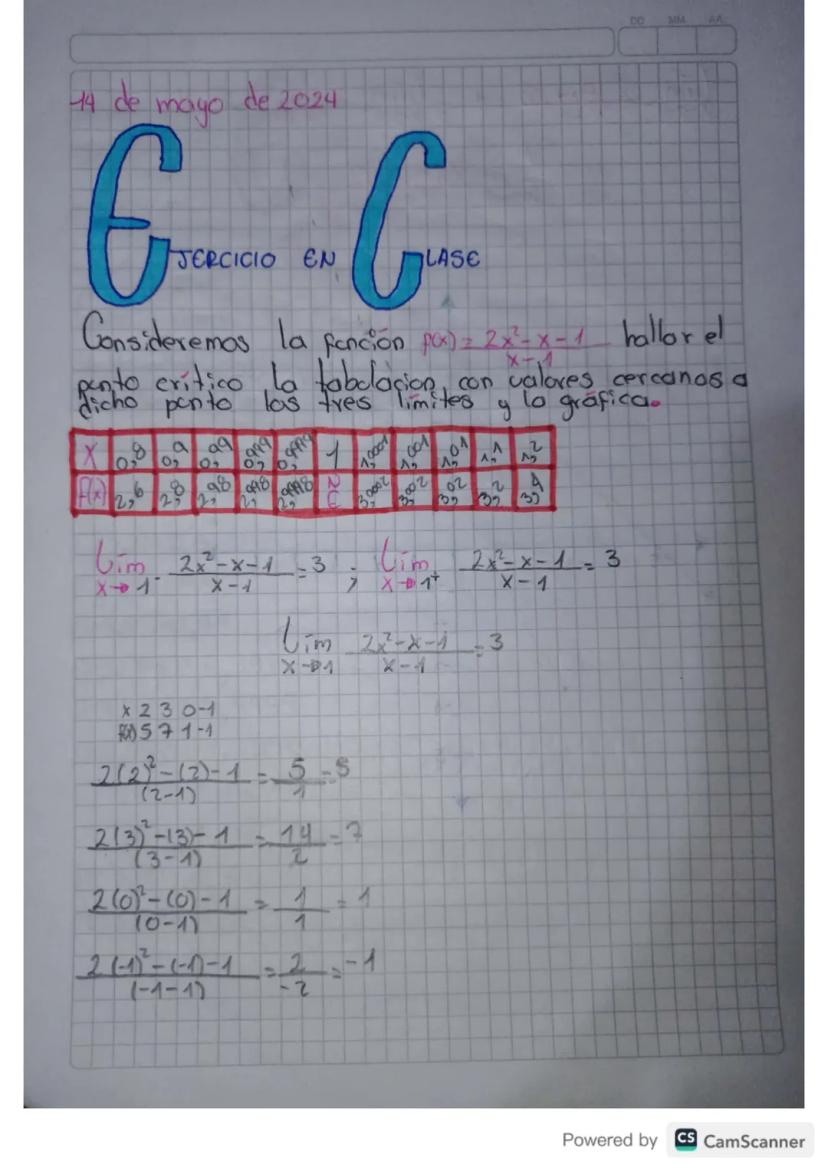 DD MM AA
14 de mayo de 2024
EJERCICIO EN CLASE
Consideremos la función f(x) = 2x²-x-1 / x-1 hallar el
punto crítico, la tabulacion, con valores cercanos a
dicho punto los tres límites y la gráfica.
X 0,8 0,9 0,99 0,999 0,9999 1 1,0001 1,001 1,01 1,1 1,2
f(x) 2,6 2,8 2,98 2,998 2,9998 3,0002 3,002 3,02 3,2 3,4
Lím x→1⁻ 2x²-x-1 / x-1 = 3 ; Lím x→1⁺ 2x²-x-1 / x-1 = 3
Lím x→1 2x²-x-1 / x-1 = 3
x 2 3 0 -1
f(x) 5 7 1 -1
2(2)²-(2)-1 / (2-1) = 5/1 = 5
2(3)²-(3)-1 / (3-1) = 14/2 = 7
2(0)²-(0)-1 / (0-1) = 1/1 = 1
2(-1)²-(-1)-1 / (-1-1) = 2/-2 = -1
Powered by CS CamScanner